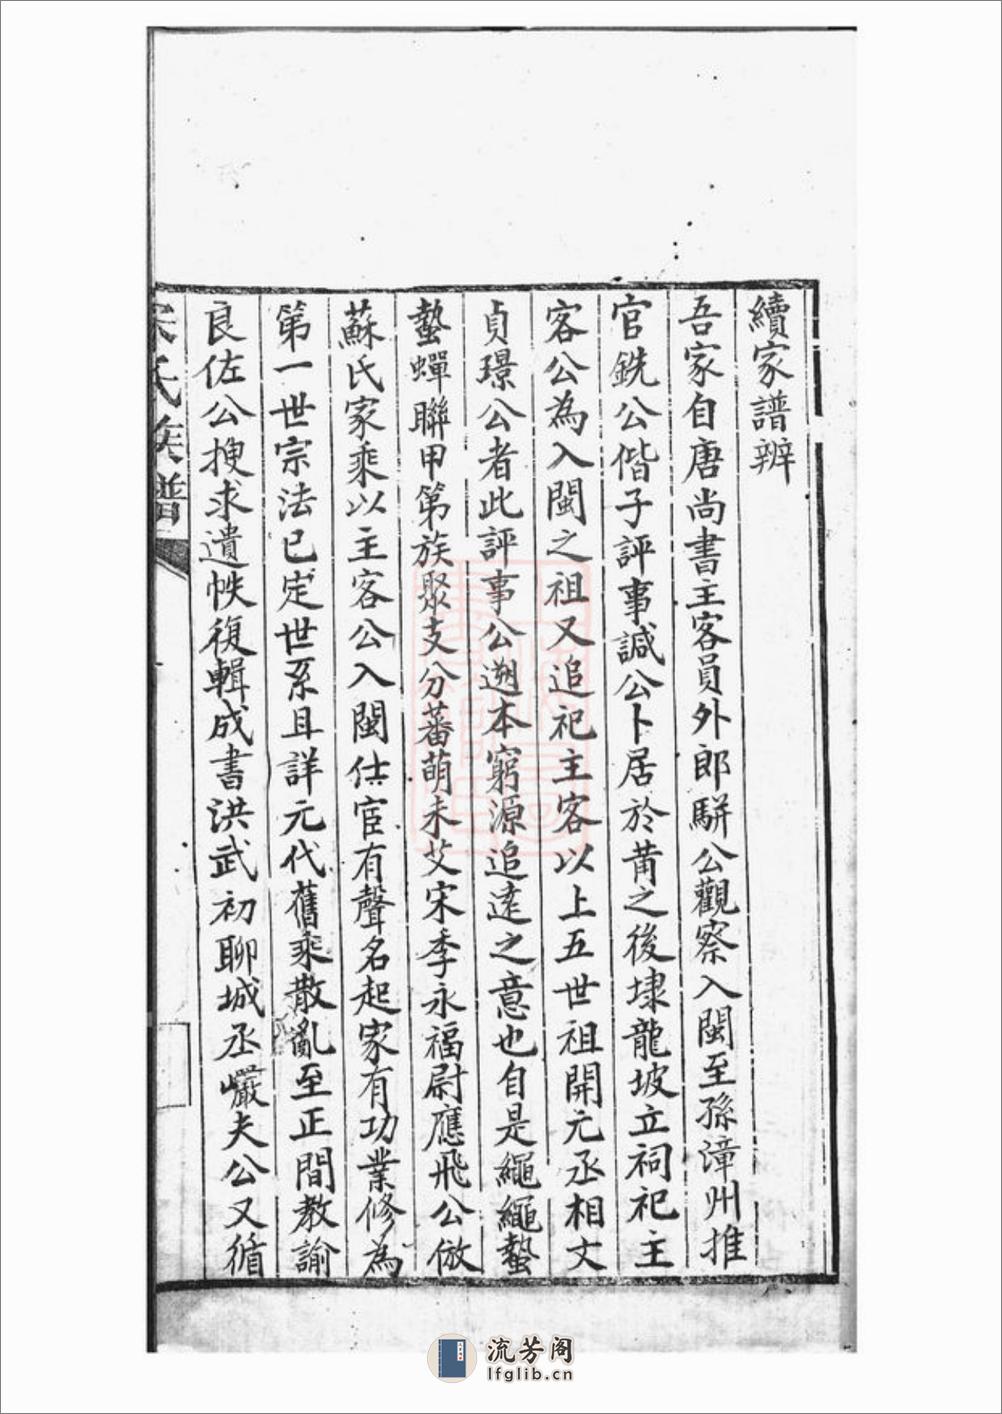 續家譜辨
吾家自唐尚書主客員外郎駢公觀察入閩至孫漳州推
官銑公偕子評事諴公卜居於莆之後埭龍坡立祠祀主
客公為入閩之祖又追祀主客以上五世祖開元丞相文
貞璟公者此評事公遡本窮源追逺之意也自是繩繩蟄
蟄蟬聯甲第族聚支分蕃萌未艾宋季永福尉應飛公倣
蘇氏家乘以主客公入閩仕宦有聲名起家有功業修為
第一世宗法已定世系且詳元代舊乘散亂至正間教諭
良佐公搜求遺帙復輯成書洪武初聊城丞巖夫公又循
宋氏族譜
流芳阁
lfglib.cn